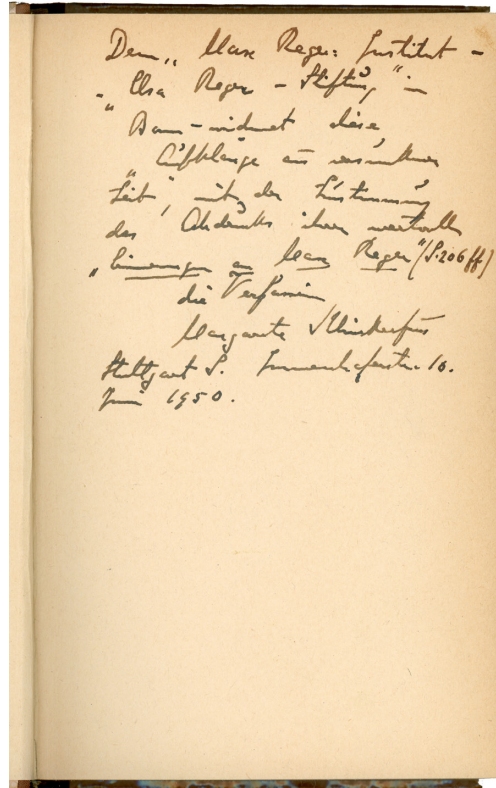 Dem „Max Reger-Institut –
„Elsa Reger – Stiftung" in
Bonn – widmet diese
„Aufklänge aus versunkener
Zeit", mit der Zustimmung
des Abdrucks ihrer wertvollen
„Erinnerungen an Max Reger" (S. 206 ff)
die Verfasserin
Margarete Klinckerfuss
Stuttgart S. Immenhoferstr. 10.
Juni 1950.